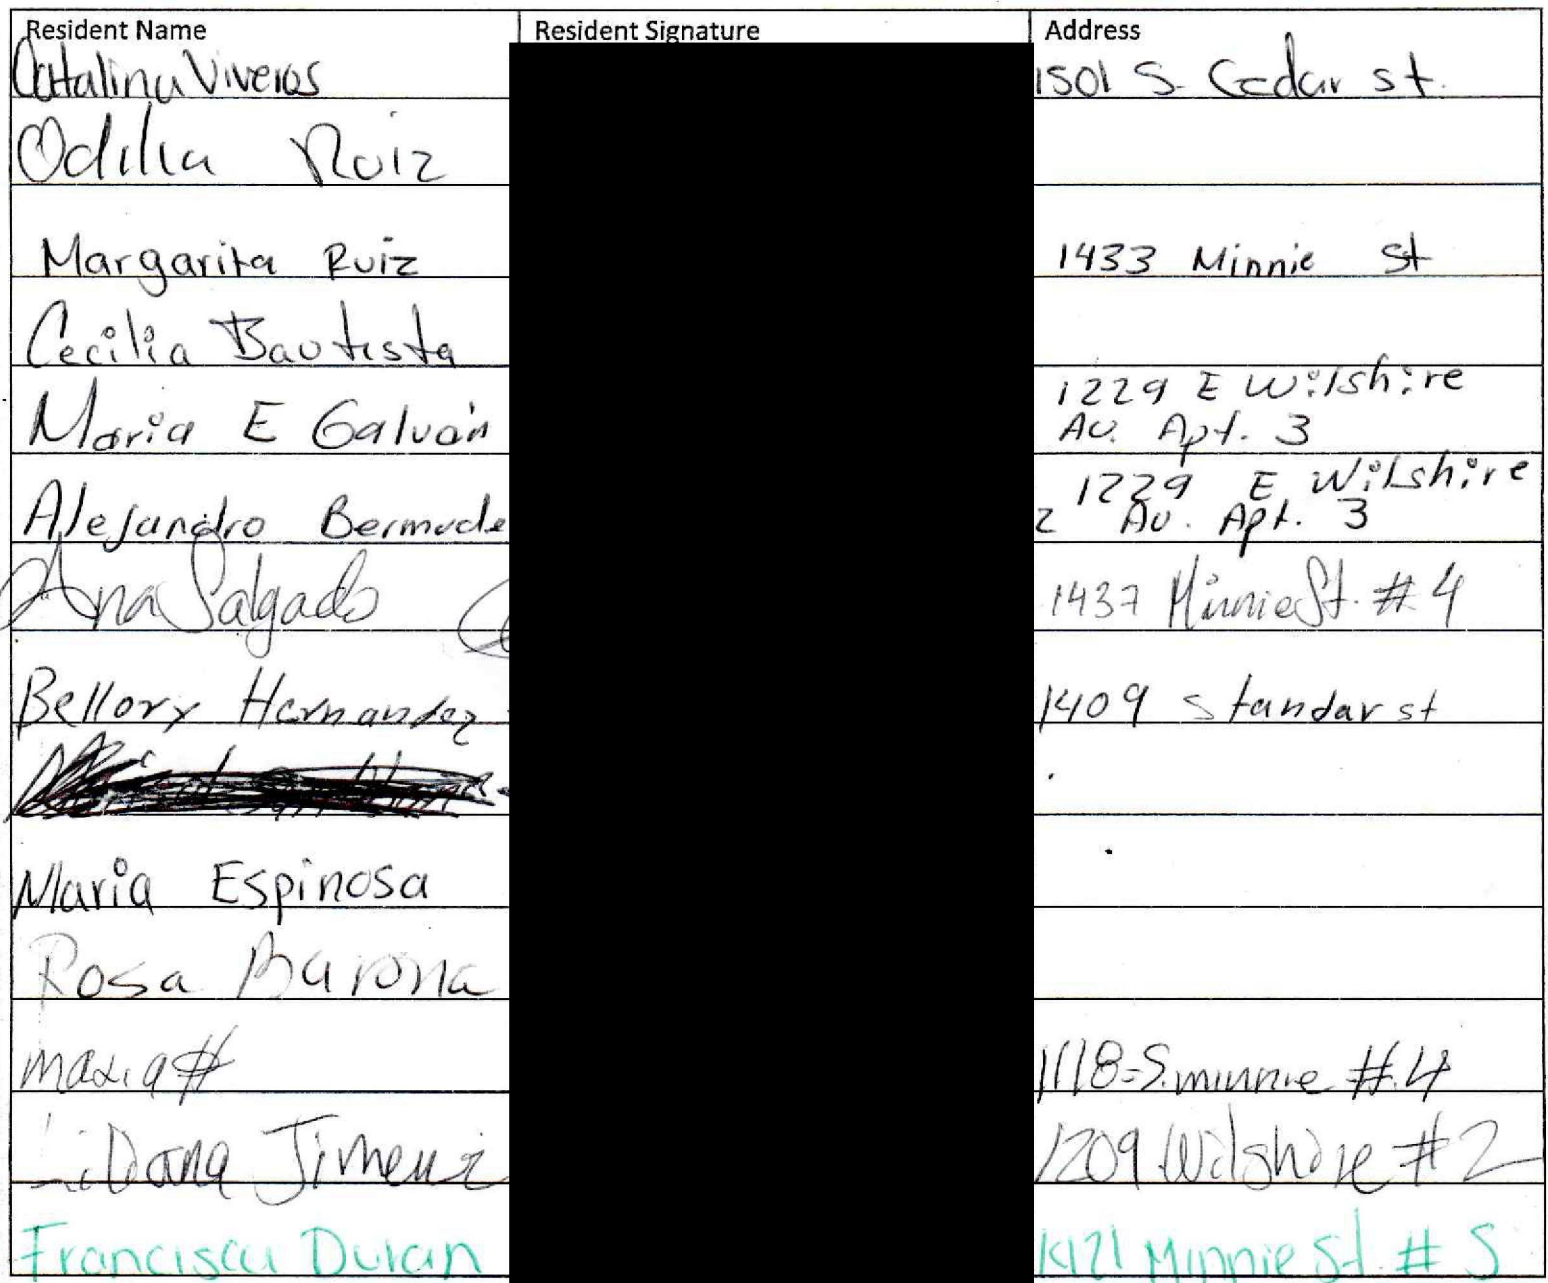 Resident Name Resident Signature Address
Catalina Viveros 1501 S. Cedar st.
Odilia Ruiz
Margarita Ruiz 1433 Minnie St
Cecilia Bautista
Maria E Galván 1229 E Wilshire
Av. Apt. 3
Alejandro Bermude 1229 E Wilshire
z Av. Apt. 3
Ana Salgado 1437 Minnie St. #4
Bellory Hernandez 1409 Standar st
Maria Espinosa
Rosa Barona
maria # 1118-S. minnie #4
Jimenez 1209 Wilshire #2
Francisca Duran 1421 Minnie St. # 5